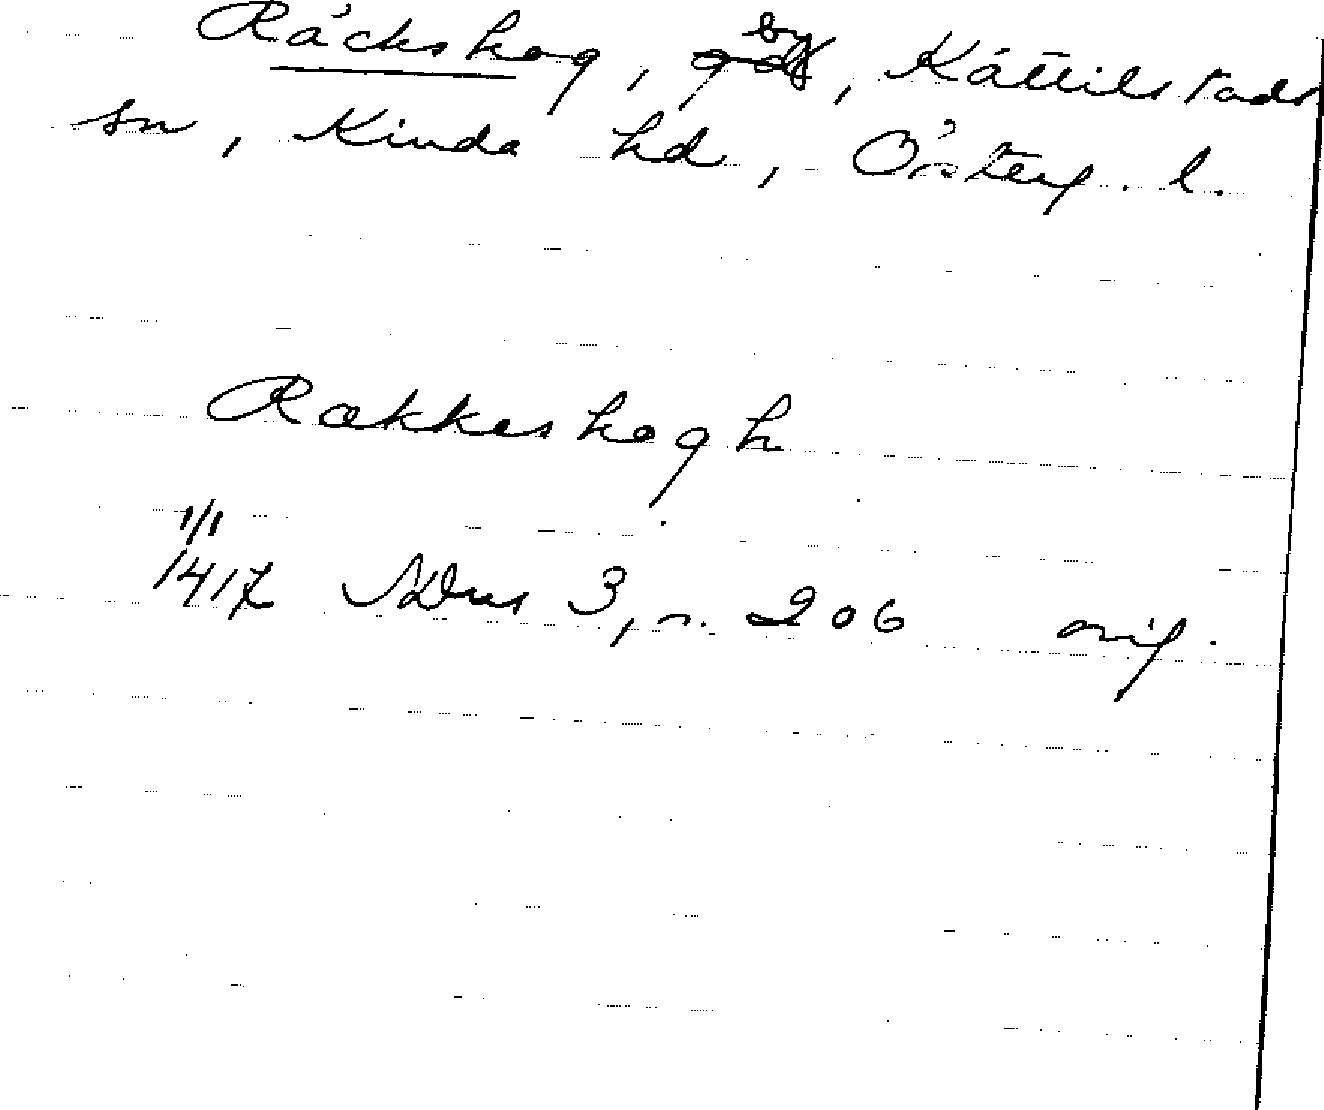 Räckskog, by, Kättilstads
sn, Kinda hd, Österg. l.
Rækkeskogh
1/1
1417 NDns 3, n. 206 orig.